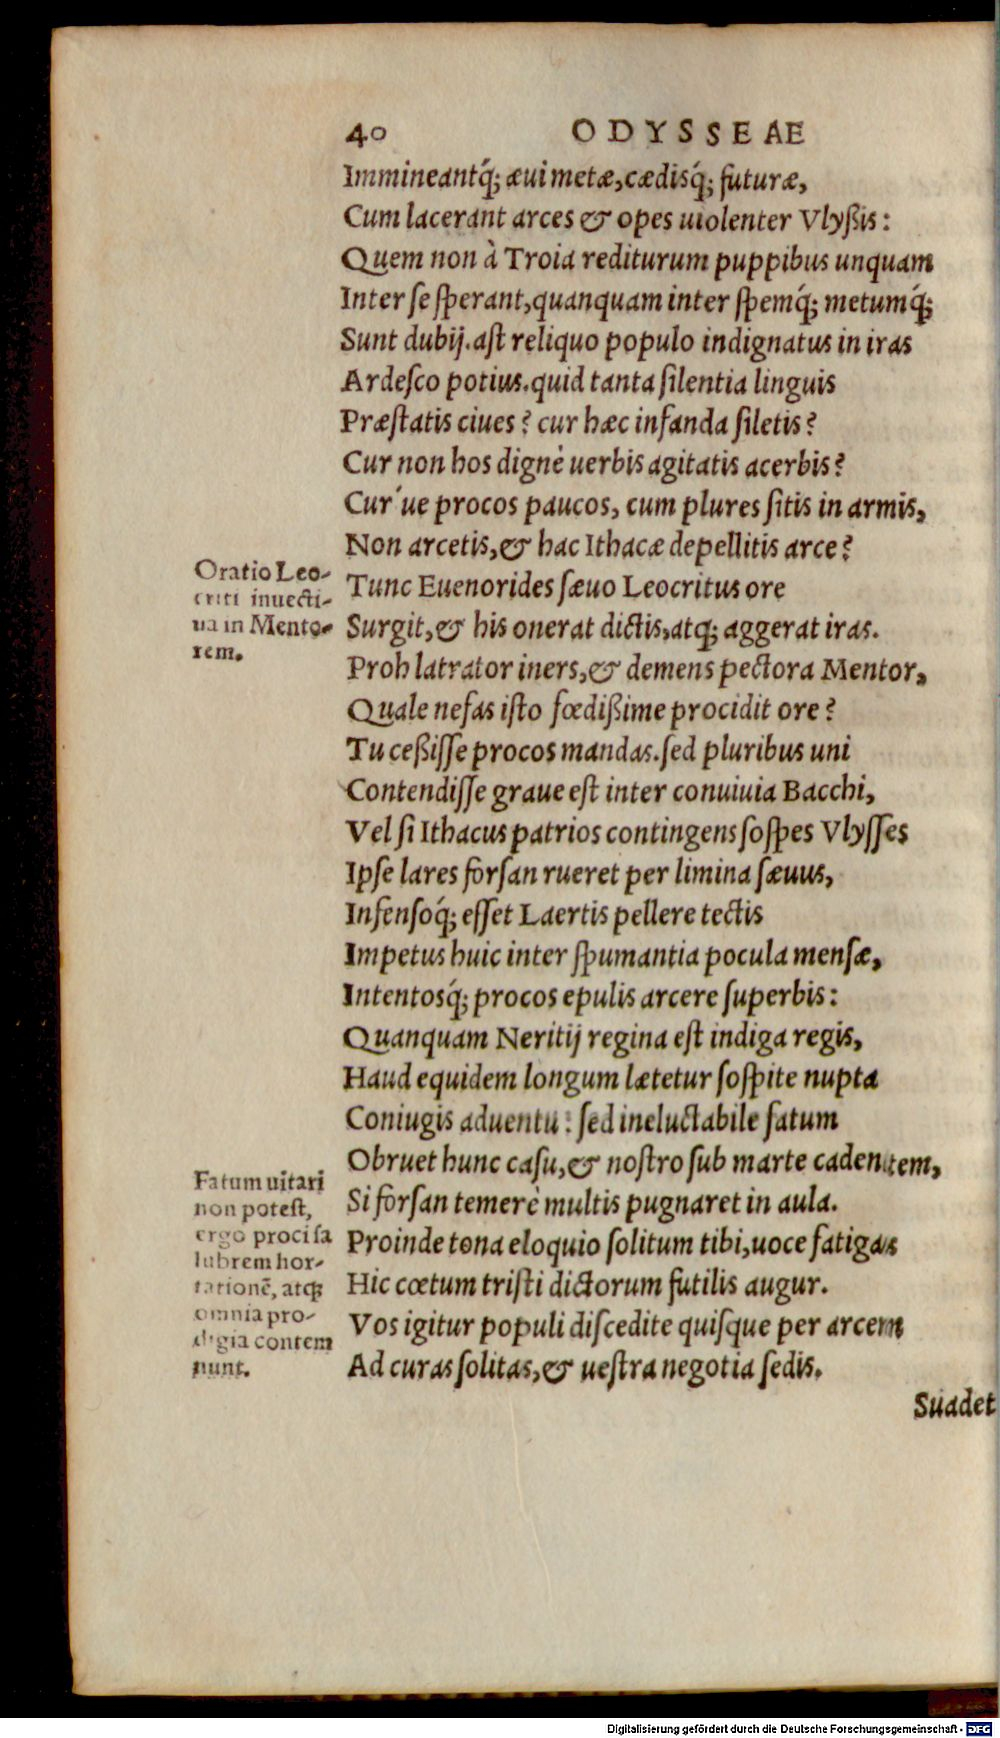 40 ODYSSEAE
Immineantq́; æui metæ, cædisq́; futuræ,
Cum lacerant arces & opes uiolenter Vlyßis:
Quem non à Troia rediturum puppibus unquam
Inter se sperant, quanquam inter spemq́; metumq́;
Sunt dubij. ast reliquo populo indignatus in iras
Ardesco potius. quid tanta silentia linguis
Præstatis ciues? cur hæc infanda siletis?
Cur non hos dignè uerbis agitatis acerbis?
Cur´ue procos paucos, cum plures sitis in armis,
Non arcetis, & hac Ithacæ depellitis arce?
Oratio Leo-
criti inuecti-
ua in Mento-
rem.
Tunc Euenorides sæuo Leocritus ore
Surgit, & his onerat dictis, atq; aggerat iras.
Proh latrator iners, & demens pectora Mentor,
Quale nefas isto fœdißime procidit ore?
Tu ceßisse procos mandas. sed pluribus uni
Contendisse graue est inter conuiuia Bacchi,
Vel si Ithacus patrios contingens sospes Vlysses
Ipse lares forsan rueret per limina sæuus,
Infensoq́; esset Laertis pellere tectis
Impetus huic inter spumantia pocula mensæ,
Intentosq́; procos epulis arcere superbis:
Quanquam Neritij regina est indiga regis,
Haud equidem longum lætetur sospite nupta
Coniugis aduentu: sed ineluctabile fatum
Obruet hunc casu, & nostro sub marte cadentem,
Si forsan temerè multis pugnaret in aula.
Proinde tona eloquio solitum tibi, uoce fatigas
Hic cœtum tristi dictorum futilis augur.
Vos igitur populi discedite quisque per arcem
Ad curas solitas, & uestra negotia sedis.
Fatum uitari
non potest,
ergo proci sa
lubrem hor-
tationẽ, atq;
omnia pro-
digia contem
nunt.
Suadet
Digitalisierung gefördert durch die Deutsche Forschungsgemeinschaft - DFG